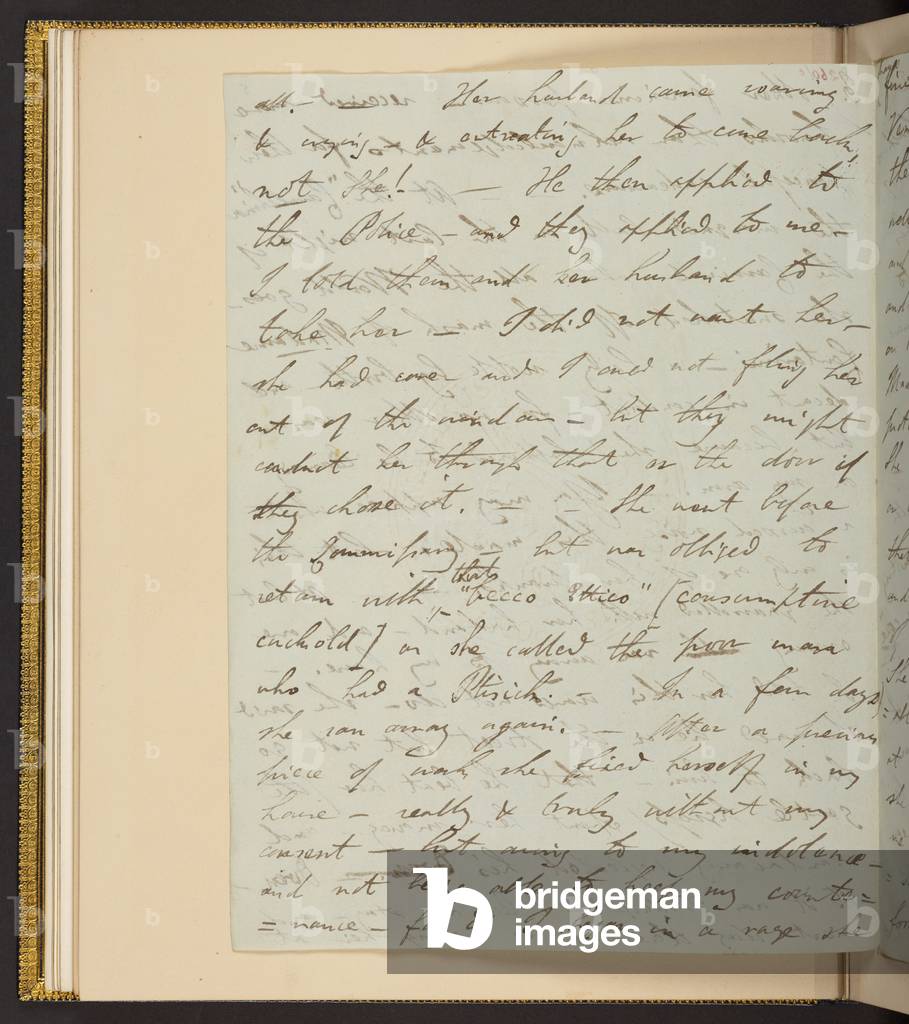 all. — Her husband came roaring
& crying — & entreating her to come back,
not She! — — He then applied to
the Police — and they applied to me —
I told them and her husband to
take her — I did not want her —
she had come and I could not fling her
out of the window — but they might
conduct her through that or the door if
they chose it. — — She went before
the Commissary — but was obliged to
return with that "becco Ettico" [consumptive
cuckold] as she called the poor man
who had a Ptisick. — In a few days
she ran away again. — After a precious
piece of work she fixed herself in my
house — really & truly without my
consent — but owing to my indolence —
and not being able to keep my counte=
=nance — for if I began in a rage she
bridgeman
images